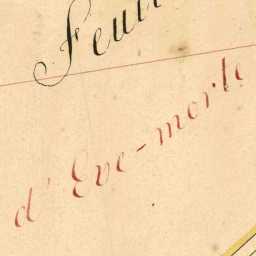 Feuil
d'Eve-morte